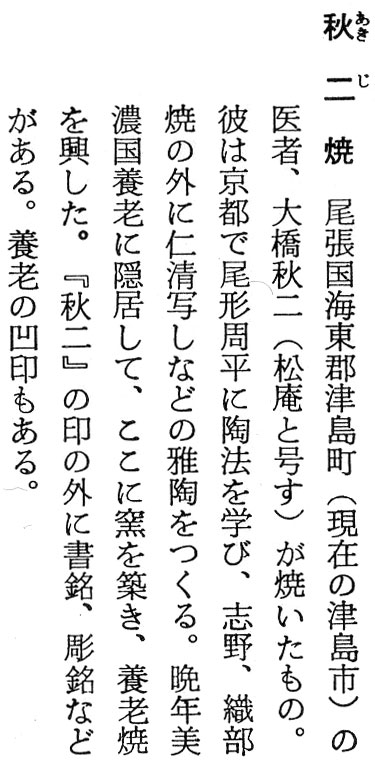 秋二焼 尾張国海東郡津島町（現在の津島市）の
医者、大橋秋二（松庵と号す）が焼いたもの。
彼は京都で尾形周平に陶法を学び、志野、織部
焼の外に仁清写しなどの雅陶をつくる。晩年美
濃国養老に隠居して、ここに窯を築き、養老焼
を興した。『秋二』の印の外に書銘、彫銘など
がある。養老の凹印もある。
あき
じ